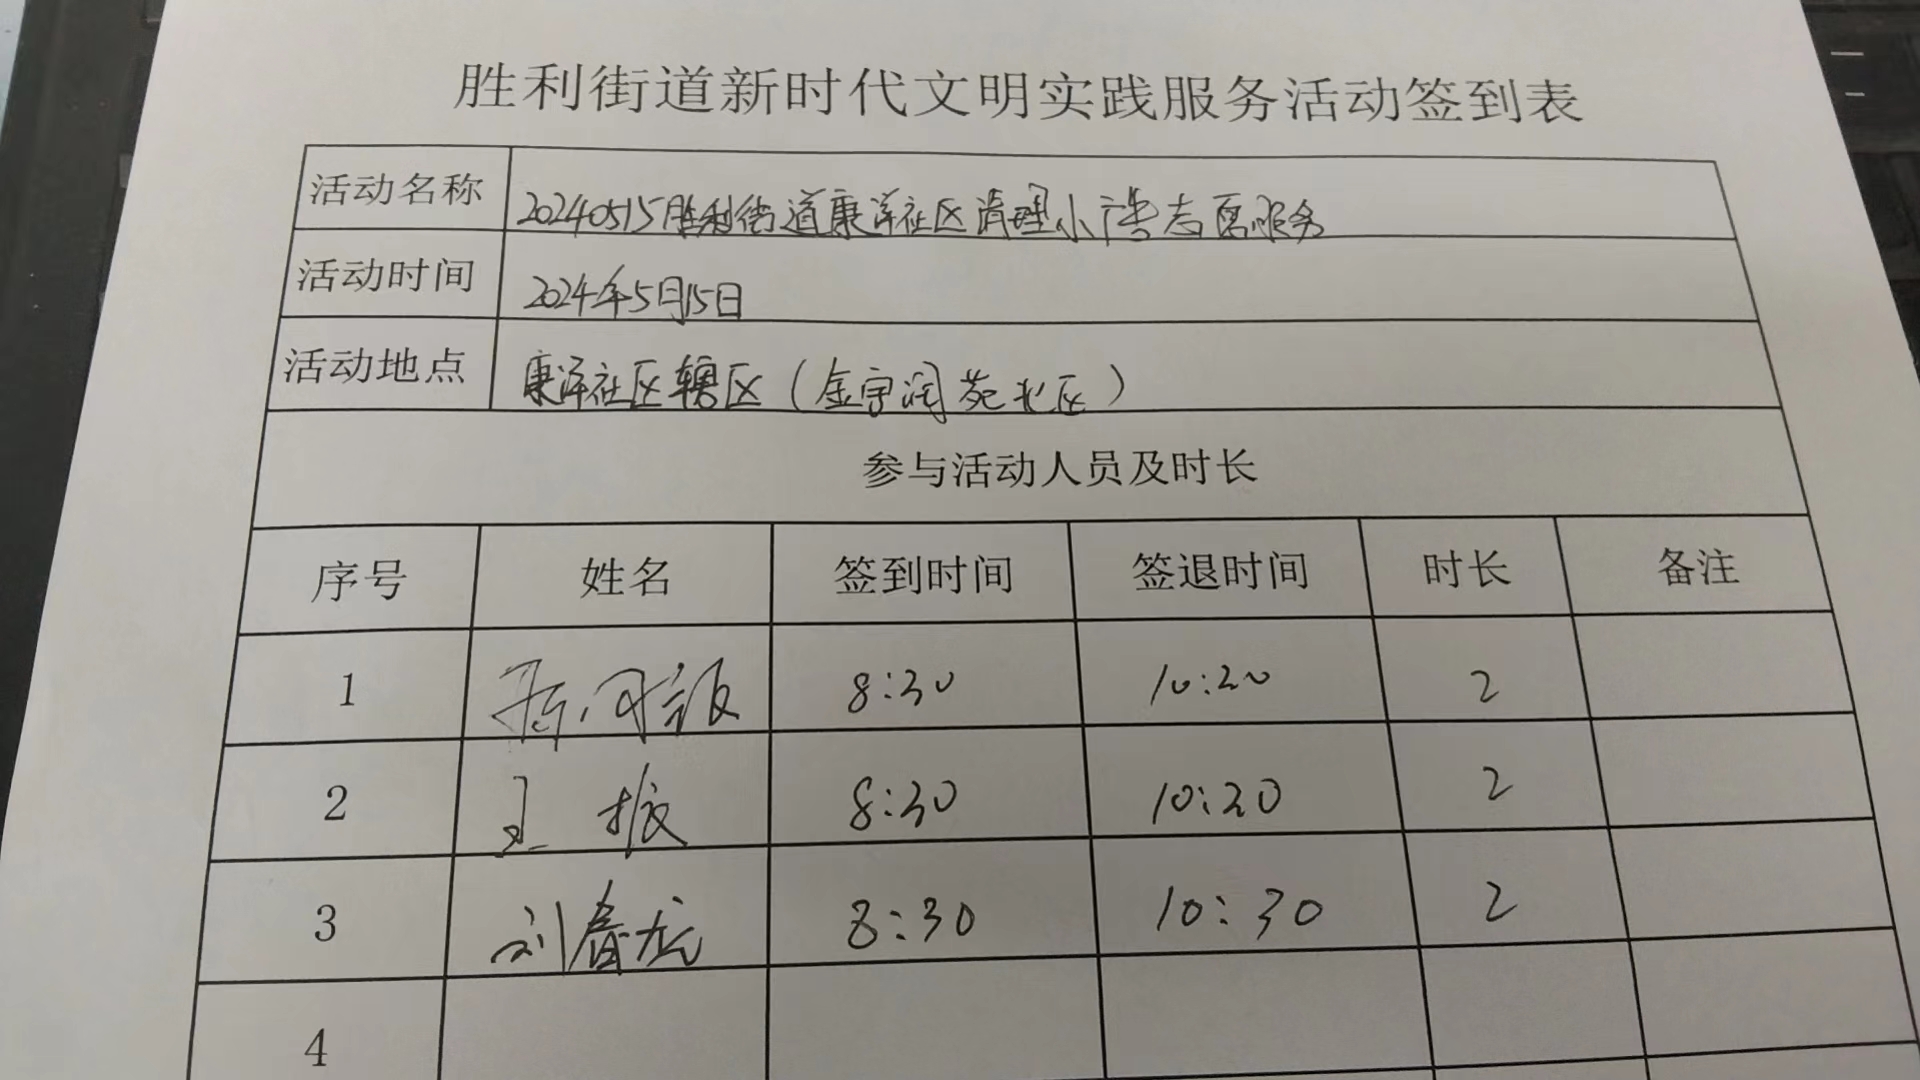 胜利街道新时代文明实践服务活动签到表
活动名称 20240515胜利街道康洋社区清理小广告志愿服务
活动时间 2024年5月15日
活动地点 康洋社区辖区（金宇润苑北区）
参与活动人员及时长
序号 姓名 签到时间 签退时间 时长 备注
1 8:30 10:20 2
2 王振 8:30 10:20 2
3 刘春龙 8:30 10:30 2
4